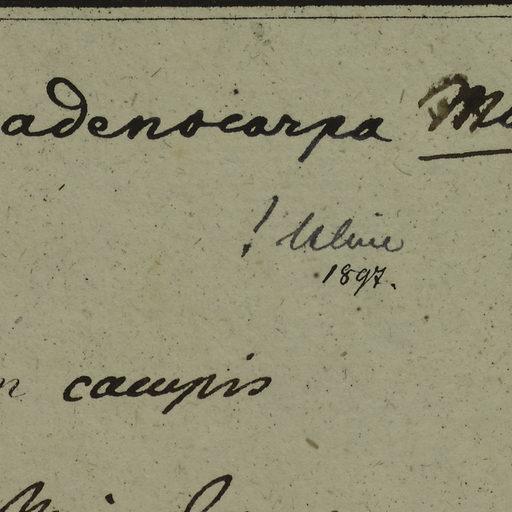 adenocarpa
! Uline
1897.
campis